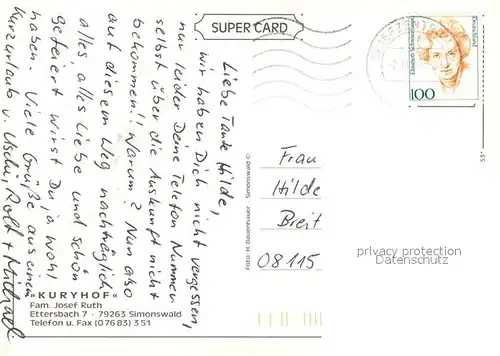 SUPER CARD
Liebe Tante Hilde,
wir haben Dich nicht vergessen,
nur leider Deine Telefon Nummer
selbst über die Auskunft nicht
bekommen!! Warum? Nun also
auf diesem Weg nachträglich
alles, alles Liebe und schön
gefeiert wirst Du ja wohl
haben. Viele Grüße aus einem
Kurzurlaub v. Uschi, Rolf + Michael
"KURYHOF"
Fam. Josef Ruth
Ettersbach 7 · 79263 Simonswald
Telefon u. Fax (0 76 83) 3 51
Foto: H. Dauenhauer Simonswald ©
Elisabeth Schwarzhaupt
Deutschland
100
Frau
Hilde
Breit
08115
53°
privacy protection
Datenschutz